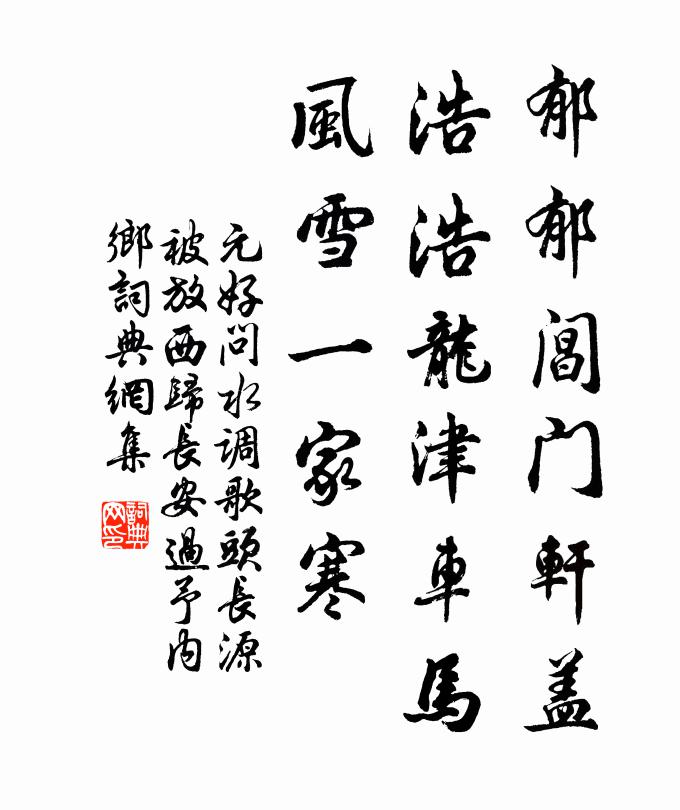 郁郁閶门軒盖
浩浩龍津車馬
風雪一家寒
元好问水调歌頭長源
被放西歸長安過予内
鄉詞典網集
詞典
网印